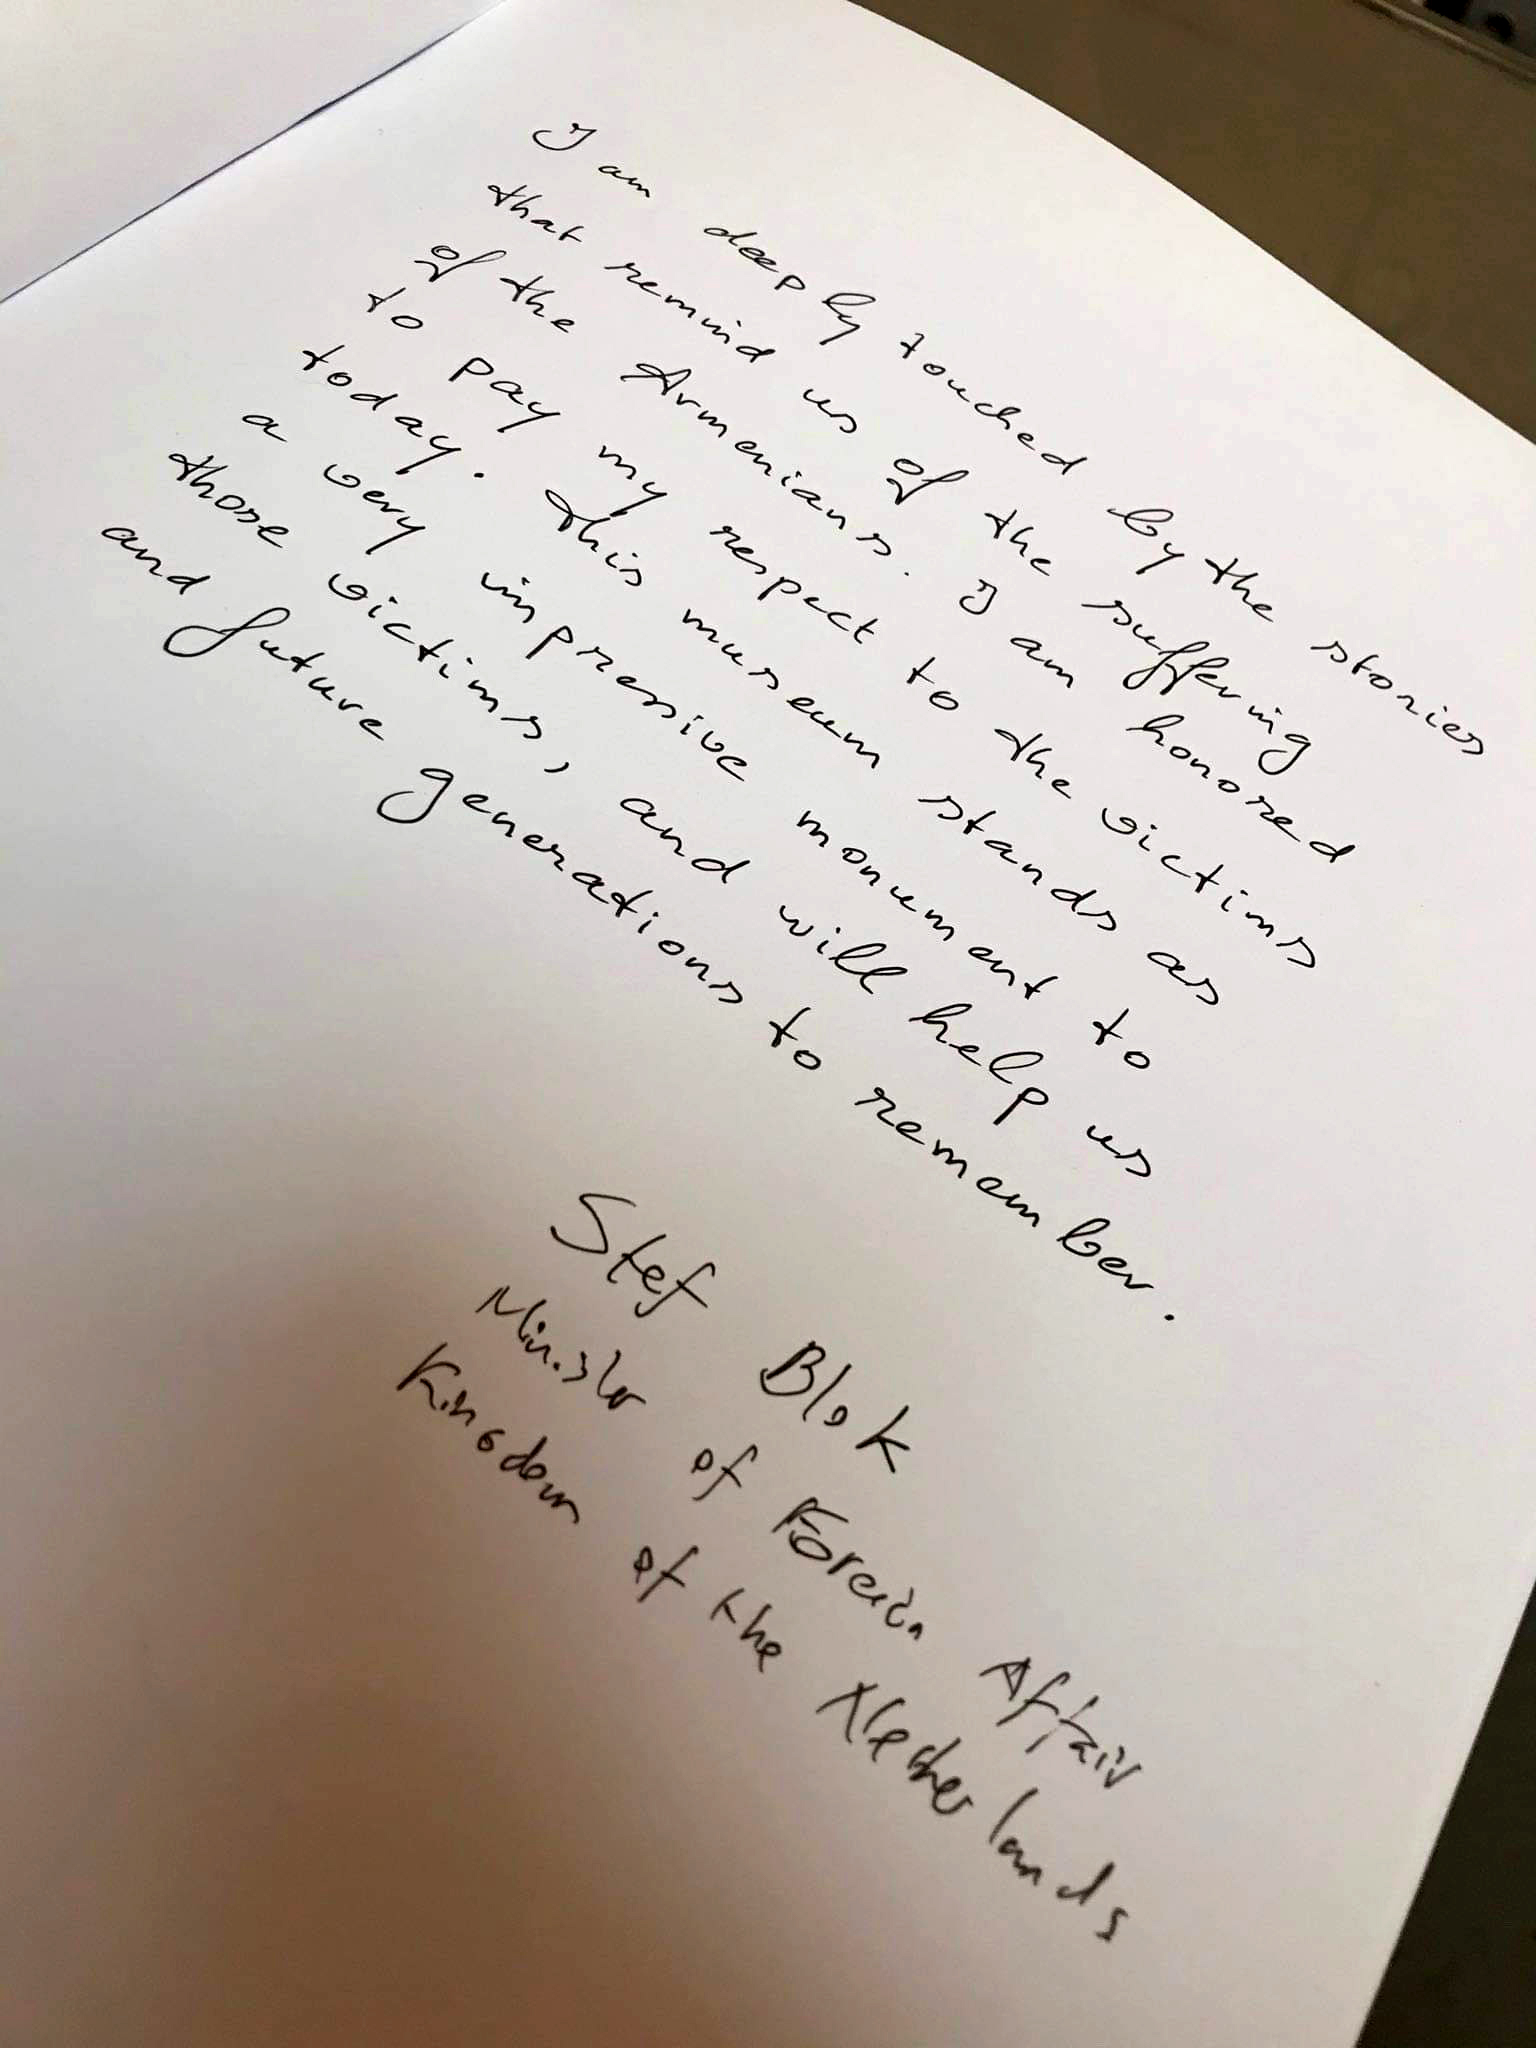 I am deeply touched by the stories
that remind us of the suffering
of the Armenians. I am honored
to pay my respect to the victims
today. This museum stands as
a very impressive monument to
those victims, and will help us
and future generations to remember.
Stef Blok
Minister of Foreign Affairs
Kingdom of the Netherlands